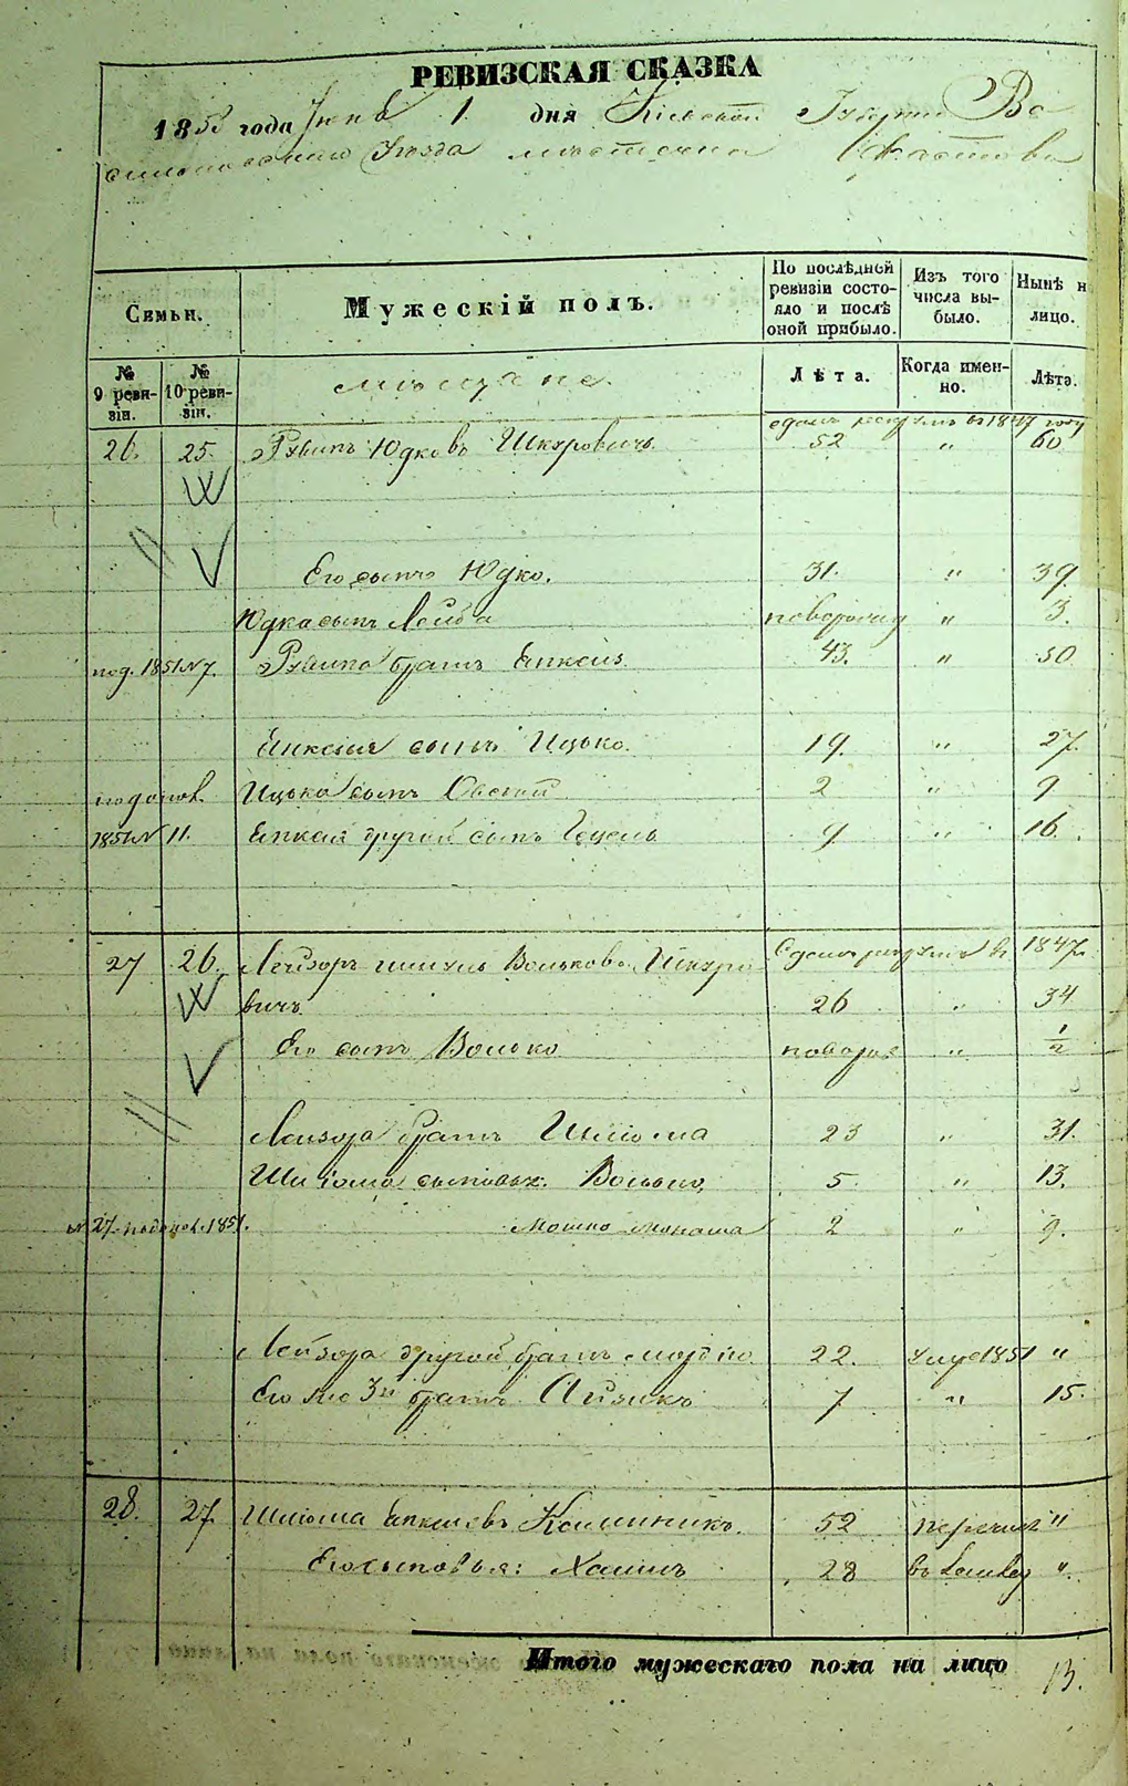 РЕВИЗСКАЯ СКАЗКА
1858 года Іюня 1 дня Кіевской Губерніи Ва
сильковскаго Уѣзда мѣстечка Фастова
Семьи.
Мужескій полъ.
По послѣдней ревизіи состояло и послѣ оной прибыло.
Изъ того числа выбыло.
Нынѣ н лицо.
№ 9 ревизіи.
№ 10 ревизіи.
мѣщане.
Лѣта.
Когда именно.
Лѣта.
въ 1847 году
26. 25. Рувинъ Юдковъ Шкуровичъ 52 " 60
Его сынъ Юдко. 31. " 39.
Юдка сынъ Лейба новорожд " 3.
под. 1851 N 7. Рувина братъ Янкель 43. " 50
Янкеля сынъ Ицько. 19. " 27.
Ицька сынъ Овсей 2 " 9
1851 N 11. Янкеля другой сынъ Гецель 9 " 16.
1847
27 26. Лейзоръ Шмуль Вольковъ Шкуро
вичъ 26 " 34
Его сынъ Волько новорож " 1/2
Лейзора братъ Шлiома 23 " 31.
Шлiома сыновья: Волько, 5 " 13.
N 27 1851. Мошко Монаша 2 " 9.
Лейзора другой братъ Мордко 22. умре 1851 "
Его же 3й братъ Айзикъ 7 " 15.
28. 27. Шлiома Янкелевъ Калиникъ. 52 перечисл "
Его сыновья: Хаимъ 28 въ "
Итого мужескаго пола на лицо 13.